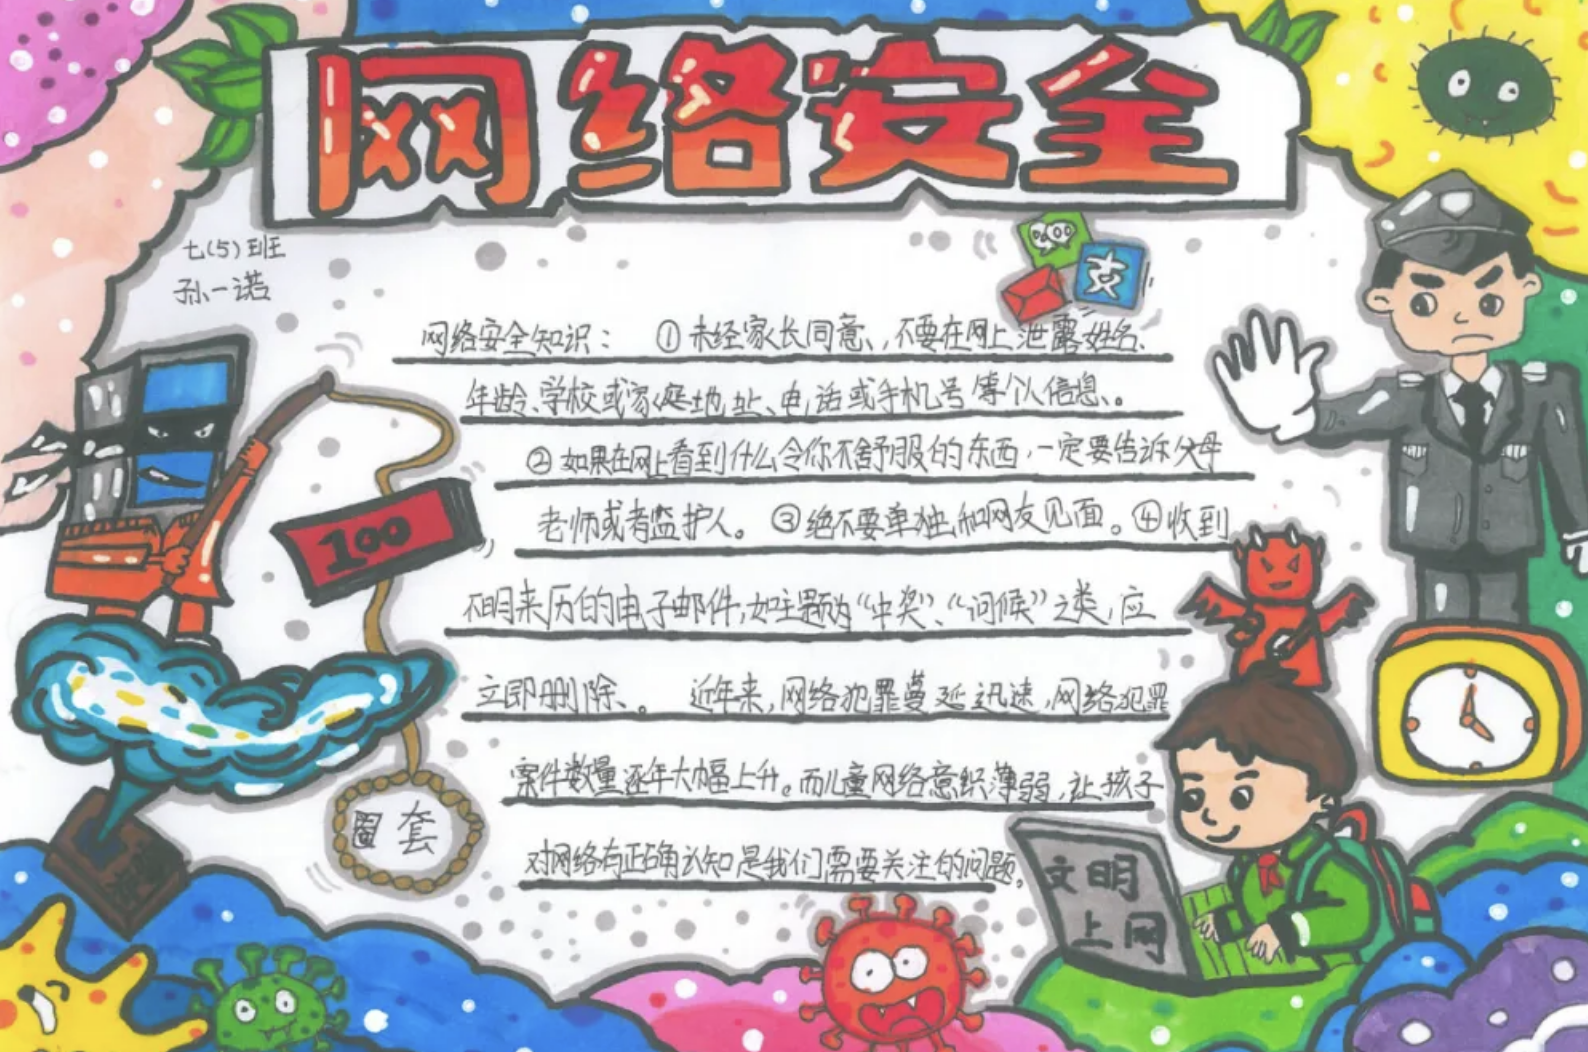 网络安全
七(5)班
孙一诺
支
网络安全知识： ①未经家长同意、，不要在网上泄露姓名、
年龄、学校或家庭地址、电话或手机号等个人信息、。
②如果在网上看到什么令你不舒服的东西，一定要告诉父母
老师或者监护人。③绝不要单独和网友见面。④收到
不明来历的电子邮件，如主题为“中奖”、“问候”之类，应
立即删除、。 近年来，网络犯罪蔓延迅速，网络犯罪
案件数量逐年大幅上升。而儿童网络意识薄弱，让孩子
对网络有正确认知是我们需要关注的问题。
100
圈套
文明
上网